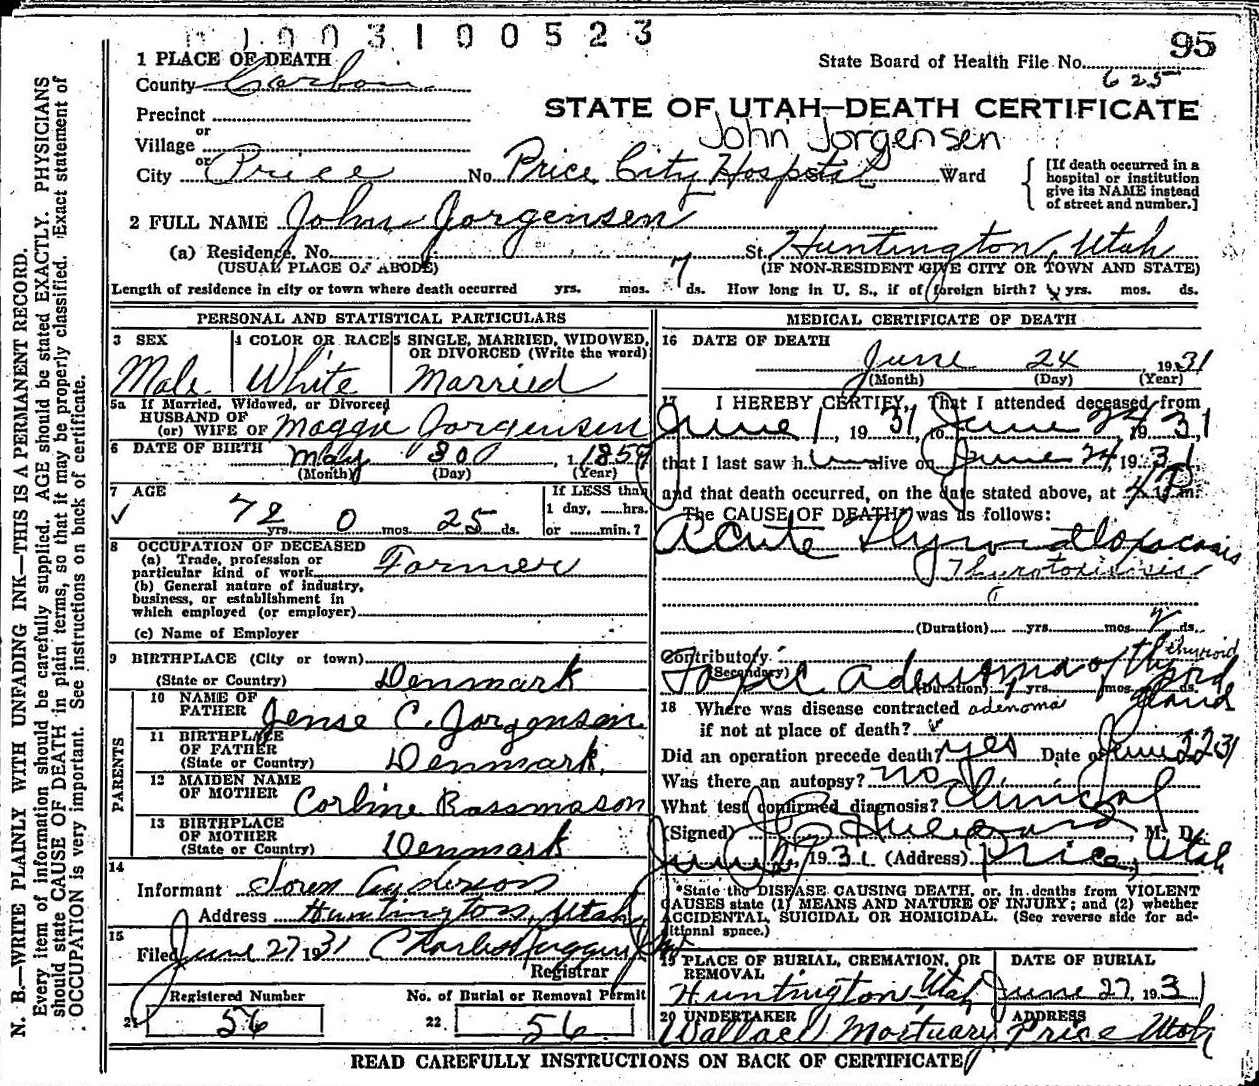 1003190523
95
1 PLACE OF DEATH
State Board of Health File No. 625
County Carbon
STATE OF UTAH—DEATH CERTIFICATE
Precinct
or
John Jorgensen
Village
or
City Price No. Price City Hospital St. Ward
[If death occurred in a
hospital or institution
give its NAME instead
of street and number.]
2 FULL NAME John Jorgensen
(a) Residence, No. St. Huntington, Utah
(USUAL PLACE OF ABODE) (IF NON-RESIDENT GIVE CITY OR TOWN AND STATE)
Length of residence in city or town where death occurred yrs. mos. 7 ds. How long in U. S., if of foreign birth? yrs. mos. ds.
PERSONAL AND STATISTICAL PARTICULARS
3 SEX 4 COLOR OR RACE 5 SINGLE, MARRIED, WIDOWED,
OR DIVORCED (Write the word)
Male White Married
5a If Married, Widowed, or Divorced
HUSBAND OF
(or) WIFE OF Maggie Jorgensen
6 DATE OF BIRTH May 30, 1859
(Month) (Day) (Year)
7 AGE
72 yrs. 0 mos. 25 ds.
If LESS than
1 day, ......hrs.
or ........min.?
8 OCCUPATION OF DECEASED
(a) Trade, profession or
particular kind of work Farmer
(b) General nature of industry,
business, or establishment in
which employed (or employer)
(c) Name of Employer
9 BIRTHPLACE (City or town)
(State or Country) Denmark
PARENTS
10 NAME OF
FATHER Jense C. Jorgensen
11 BIRTHPLACE
OF FATHER
(State or Country) Denmark.
12 MAIDEN NAME
OF MOTHER Rassmason
13 BIRTHPLACE
OF MOTHER
(State or Country) Denmark
14
Informant Soren Anderson
Address Huntington, Utah
15
Filed June 27 1931 Charles
Registrar
Registered Number No. of Burial or Removal Permit
21 56 22. 56
MEDICAL CERTIFICATE OF DEATH
16 DATE OF DEATH
June 24 1931
(Month) (Day) (Year)
17 I HEREBY CERTIFY, That I attended deceased from
June 1, 1931 to June 24 1931
that I last saw him alive on June 24, 1931
and that death occurred, on the date stated above, at 4 P m.
The CAUSE OF DEATH* was as follows:
Acute
Thyrotoxicosis
(Duration) yrs. mos. ds.
Contributory thyroid
(Secondary)
Toxic adenoma of thyroid
(Duration) yrs. mos. ds.
18 Where was disease contracted adenoma gland
if not at place of death?
Did an operation precede death? yes Date of June 22 31
Was there an autopsy? no
What test confirmed diagnosis? Clinical
(Signed) M. D.
June 27, 1931 (Address) Price, Utah
*State the DISEASE CAUSING DEATH, or, in deaths from VIOLENT
CAUSES state (1) MEANS AND NATURE OF INJURY; and (2) whether
ACCIDENTAL, SUICIDAL OR HOMICIDAL. (See reverse side for ad-
ditional space.)
19 PLACE OF BURIAL, CREMATION, OR
REMOVAL
DATE OF BURIAL
Huntington Utah June 27, 1931
20 UNDERTAKER ADDRESS
Wallace Mortuary Price Utah
READ CAREFULLY INSTRUCTIONS ON BACK OF CERTIFICATE
N. B.—WRITE PLAINLY WITH UNFADING INK—THIS IS A PERMANENT RECORD.
Every item of information should be carefully supplied. AGE should be stated EXACTLY. PHYSICIANS
should state CAUSE OF DEATH in plain terms, so that it may be properly classified. Exact statement of
OCCUPATION is very important. See instructions on back of certificate.